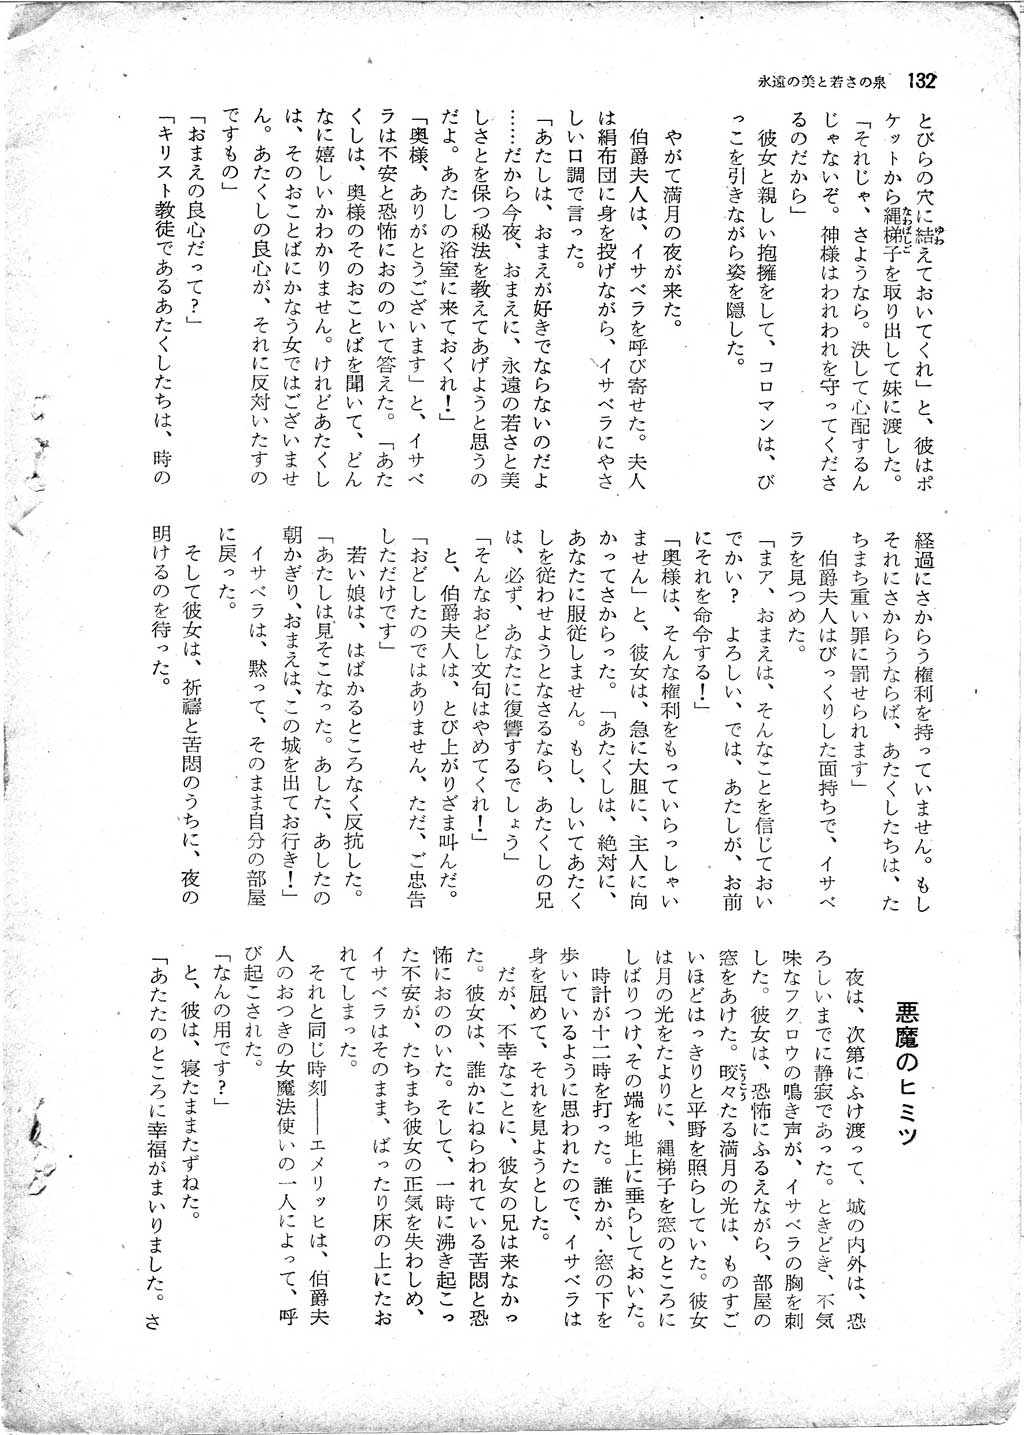 永遠の美と若さの泉 132
とびらの穴に結えておいてくれ」と、彼はポ
ケットから縄梯子を取り出して妹に渡した。
「それじゃ、さようなら。決して心配するん
じゃないぞ。神様はわれわれを守ってくださ
るのだから」
彼女と親しい抱擁をして、コロマンは、び
っこを引きながら姿を隠した。
やがて満月の夜が来た。
伯爵夫人は、イサベラを呼び寄せた。夫人
は絹布団に身を投げながら、イサベラにやさ
しい口調で言った。
「あたしは、おまえが好きでならないのだよ
……だから今夜、おまえに、永遠の若さと美
しさとを保つ秘法を教えてあげようと思うの
だよ。あたしの浴室に来ておくれ！」
「奥様、ありがとうございます」と、イサベ
ラは不安と恐怖におののいて答えた。「あた
くしは、奥様のそのおことばを聞いて、どん
なに嬉しいかわかりません。けれどあたくし
は、そのおことばにかなう女ではございませ
ん。あたくしの良心が、それに反対いたすの
ですもの」
「おまえの良心だって？」
「キリスト教徒であるあたくしたちは、時の
経過にさからう権利を持っていません。もし
それにさからうならば、あたくしたちは、た
ちまち重い罪に罰せられます」
伯爵夫人はびっくりした面持ちで、イサベ
ラを見つめた。
「まア、おまえは、そんなことを信じておい
でかい？　よろしい、では、あたしが、お前
にそれを命令する！」
「奥様は、そんな権利をもっていらっしゃい
ません」と、彼女は、急に大胆に、主人に向
かってさからった。「あたくしは、絶対に、
あなたに服従しません。もし、しいてあたく
しを従わせようとなさるなら、あたくしの兄
は、必ず、あなたに復讐するでしょう」
「そんなおどし文句はやめてくれ！」
と、伯爵夫人は、とび上がりざま叫んだ。
「おどしたのではありません、ただ、ご忠告
しただけです」
若い娘は、はばかるところなく反抗した。
「あたしは見そこなった。あした、あしたの
朝かぎり、おまえは、この城を出てお行き！」
イサベラは、黙って、そのまま自分の部屋
に戻った。
そして彼女は、祈禱と苦悶のうちに、夜の
明けるのを待った。
悪魔のヒミツ
夜は、次第にふけ渡って、城の内外は、恐
ろしいまでに静寂であった。ときどき、不気
味なフクロウの鳴き声が、イサベラの胸を刺
した。彼女は、恐怖にふるえながら、部屋の
窓をあけた。皎々たる満月の光は、ものすご
いほどはっきりと平野を照らしていた。彼女
は月の光をたよりに、縄梯子を窓のところに
しばりつけ、その端を地上に垂らしておいた。
時計が十二時を打った。誰かが、窓の下を
歩いているように思われたので、イサベラは
身を屈めて、それを見ようとした。
だが、不幸なことに、彼女の兄は来なかっ
た。彼女は、誰かにねらわれている苦悶と恐
怖におののいた。そして、一時に沸き起こっ
た不安が、たちまち彼女の正気を失わしめ、
イサベラはそのまま、ばったり床の上にたお
れてしまった。
それと同じ時刻――エメリッヒは、伯爵夫
人のおつきの女魔法使いの一人によって、呼
び起こされた。
「なんの用です？」
と、彼は、寝たままたずねた。
「あたたのところに幸福がまいりました。さ